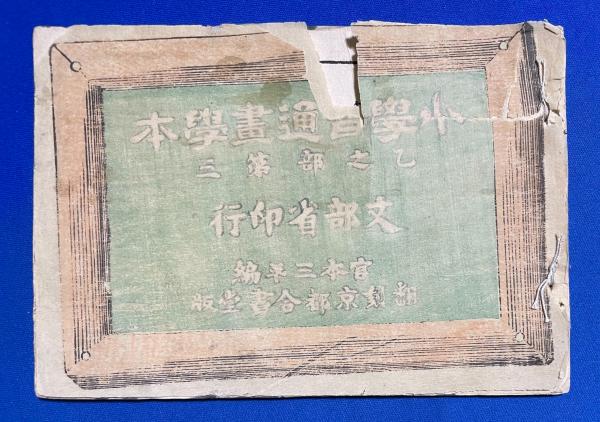 小學普通畫學本
乙之部第三
文部省印行
宮本三平編
翻刻京都合書堂版